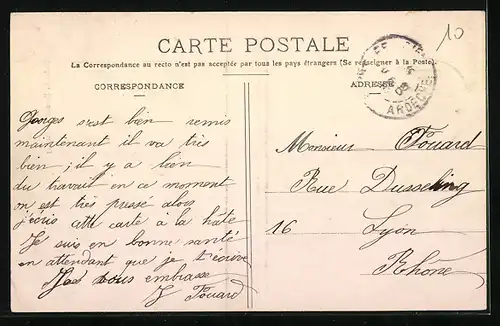 10
CARTE POSTALE
La Correspondance au recto n'est pas acceptée par tous les pays étrangers (Se renseigner à la Poste.)
CORRESPONDANCE
ADRESSE
ARDECHE
Georges s'est bien remis
maintenant il va très
bien ; il y a bien
du travail en ce moment
on est très pressé alors
j'écris cette carte à la hâte
Je suis en bonne santé
en attendant que je t'écrive
vous embrasse
J Fouard
Monsieur Fouard
Rue
16 Lyon
Rhône